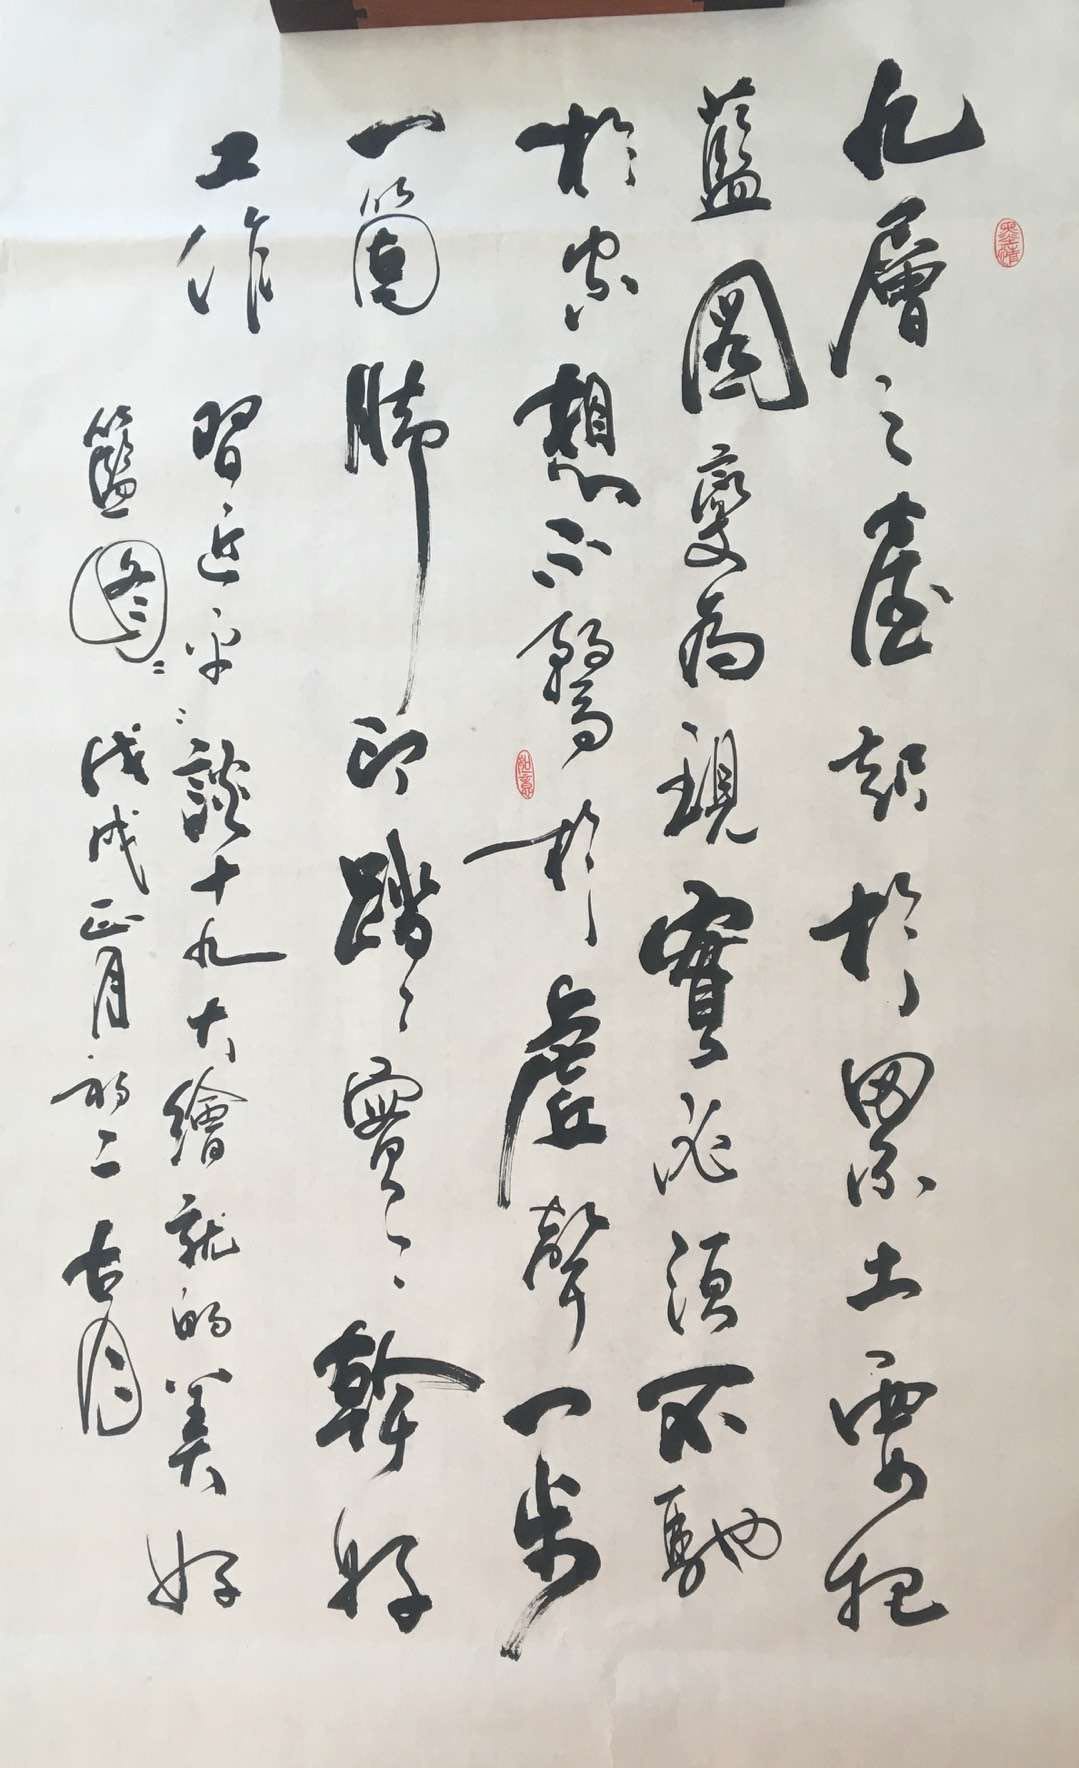 九層之臺起於累土要把
藍圖變爲現實必須不馳
於空想不騖於虛聲一步
一箇脚印踏踏實實幹好
工作 習近平談十九大繪就的美好
籃圖 戊戌正月初二 古月